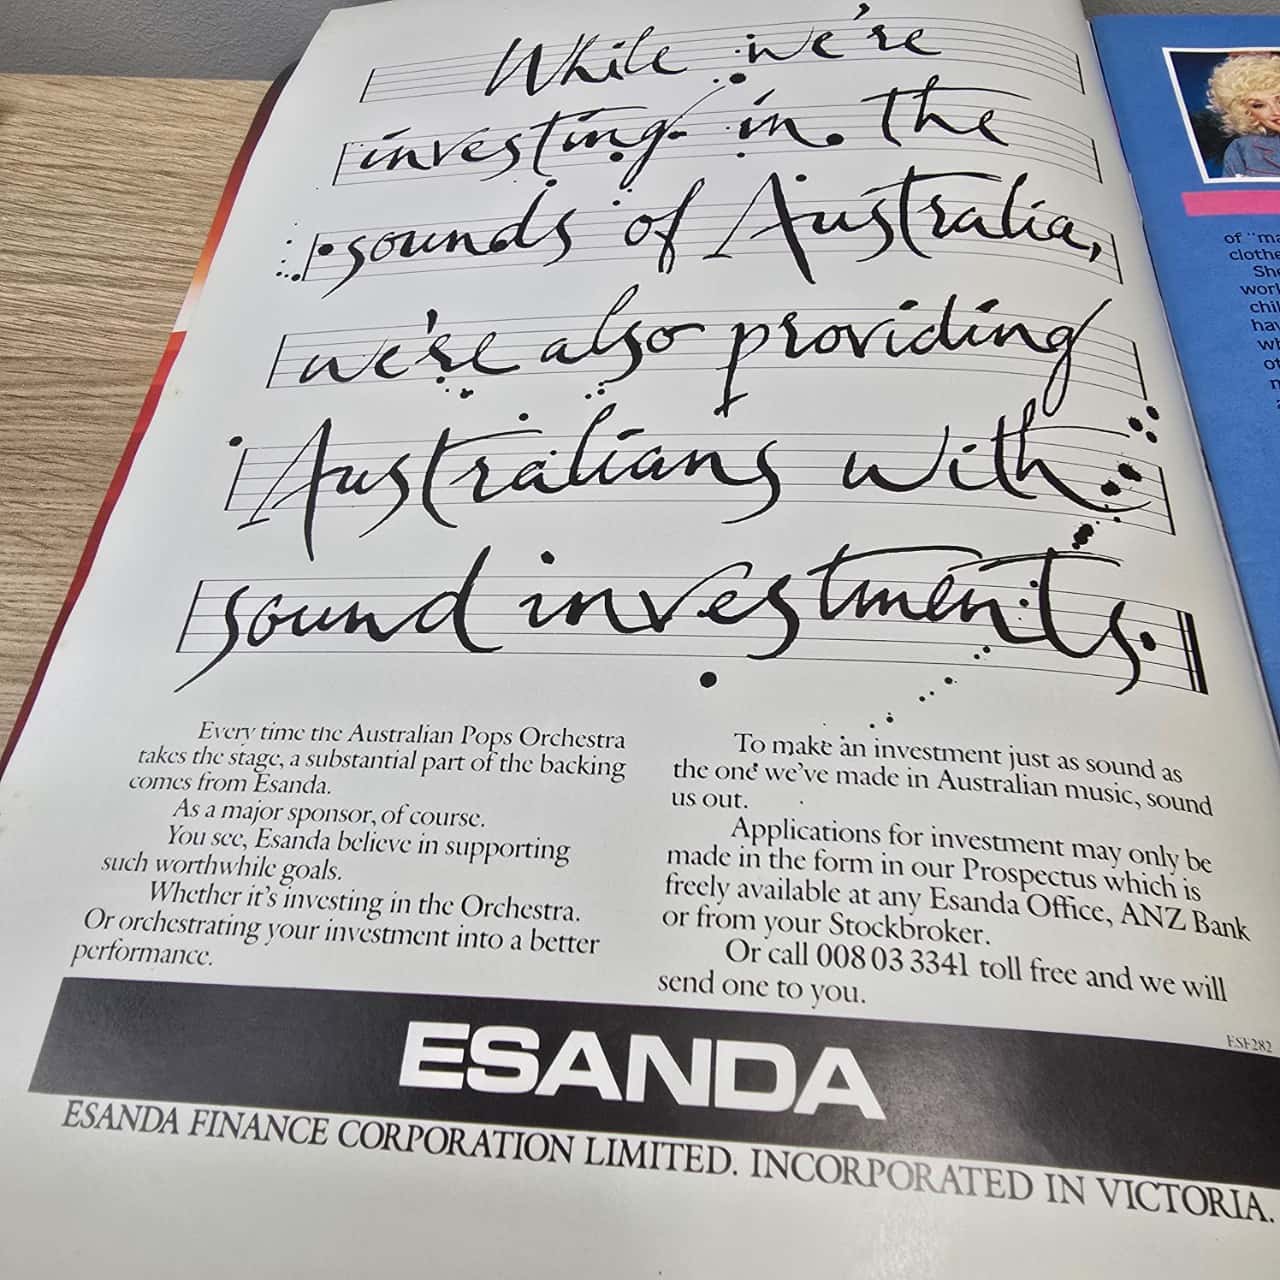 While we're
investing in the
sounds of Australia,
we're also providing
Australians with
sound investments.
Every time the Australian Pops Orchestra
takes the stage, a substantial part of the backing
comes from Esanda.
As a major sponsor, of course.
You see, Esanda believe in supporting
such worthwhile goals.
Whether it's investing in the Orchestra.
Or orchestrating your investment into a better
performance.
To make an investment just as sound as
the one we've made in Australian music, sound
us out.
Applications for investment may only be
made in the form in our Prospectus which is
freely available at any Esanda Office, ANZ Bank
or from your Stockbroker.
Or call 008 03 3341 toll free and we will
send one to you.
ESF282
ESANDA
ESANDA FINANCE CORPORATION LIMITED. INCORPORATED IN VICTORIA.
of "ma
clothe
She
worl
chil
hav
wh
ot